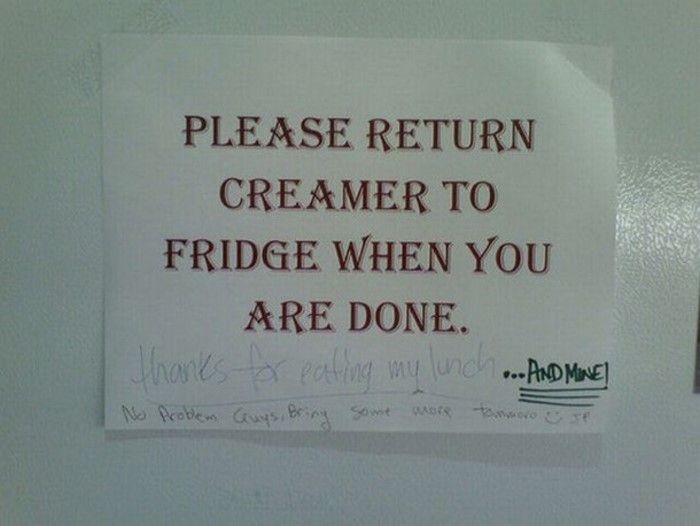 PLEASE RETURN
CREAMER TO
FRIDGE WHEN YOU
ARE DONE.
thanks for eating my lunch ...AND MINE!
No Problem Guys, Bring some more tommoro ☺ JP